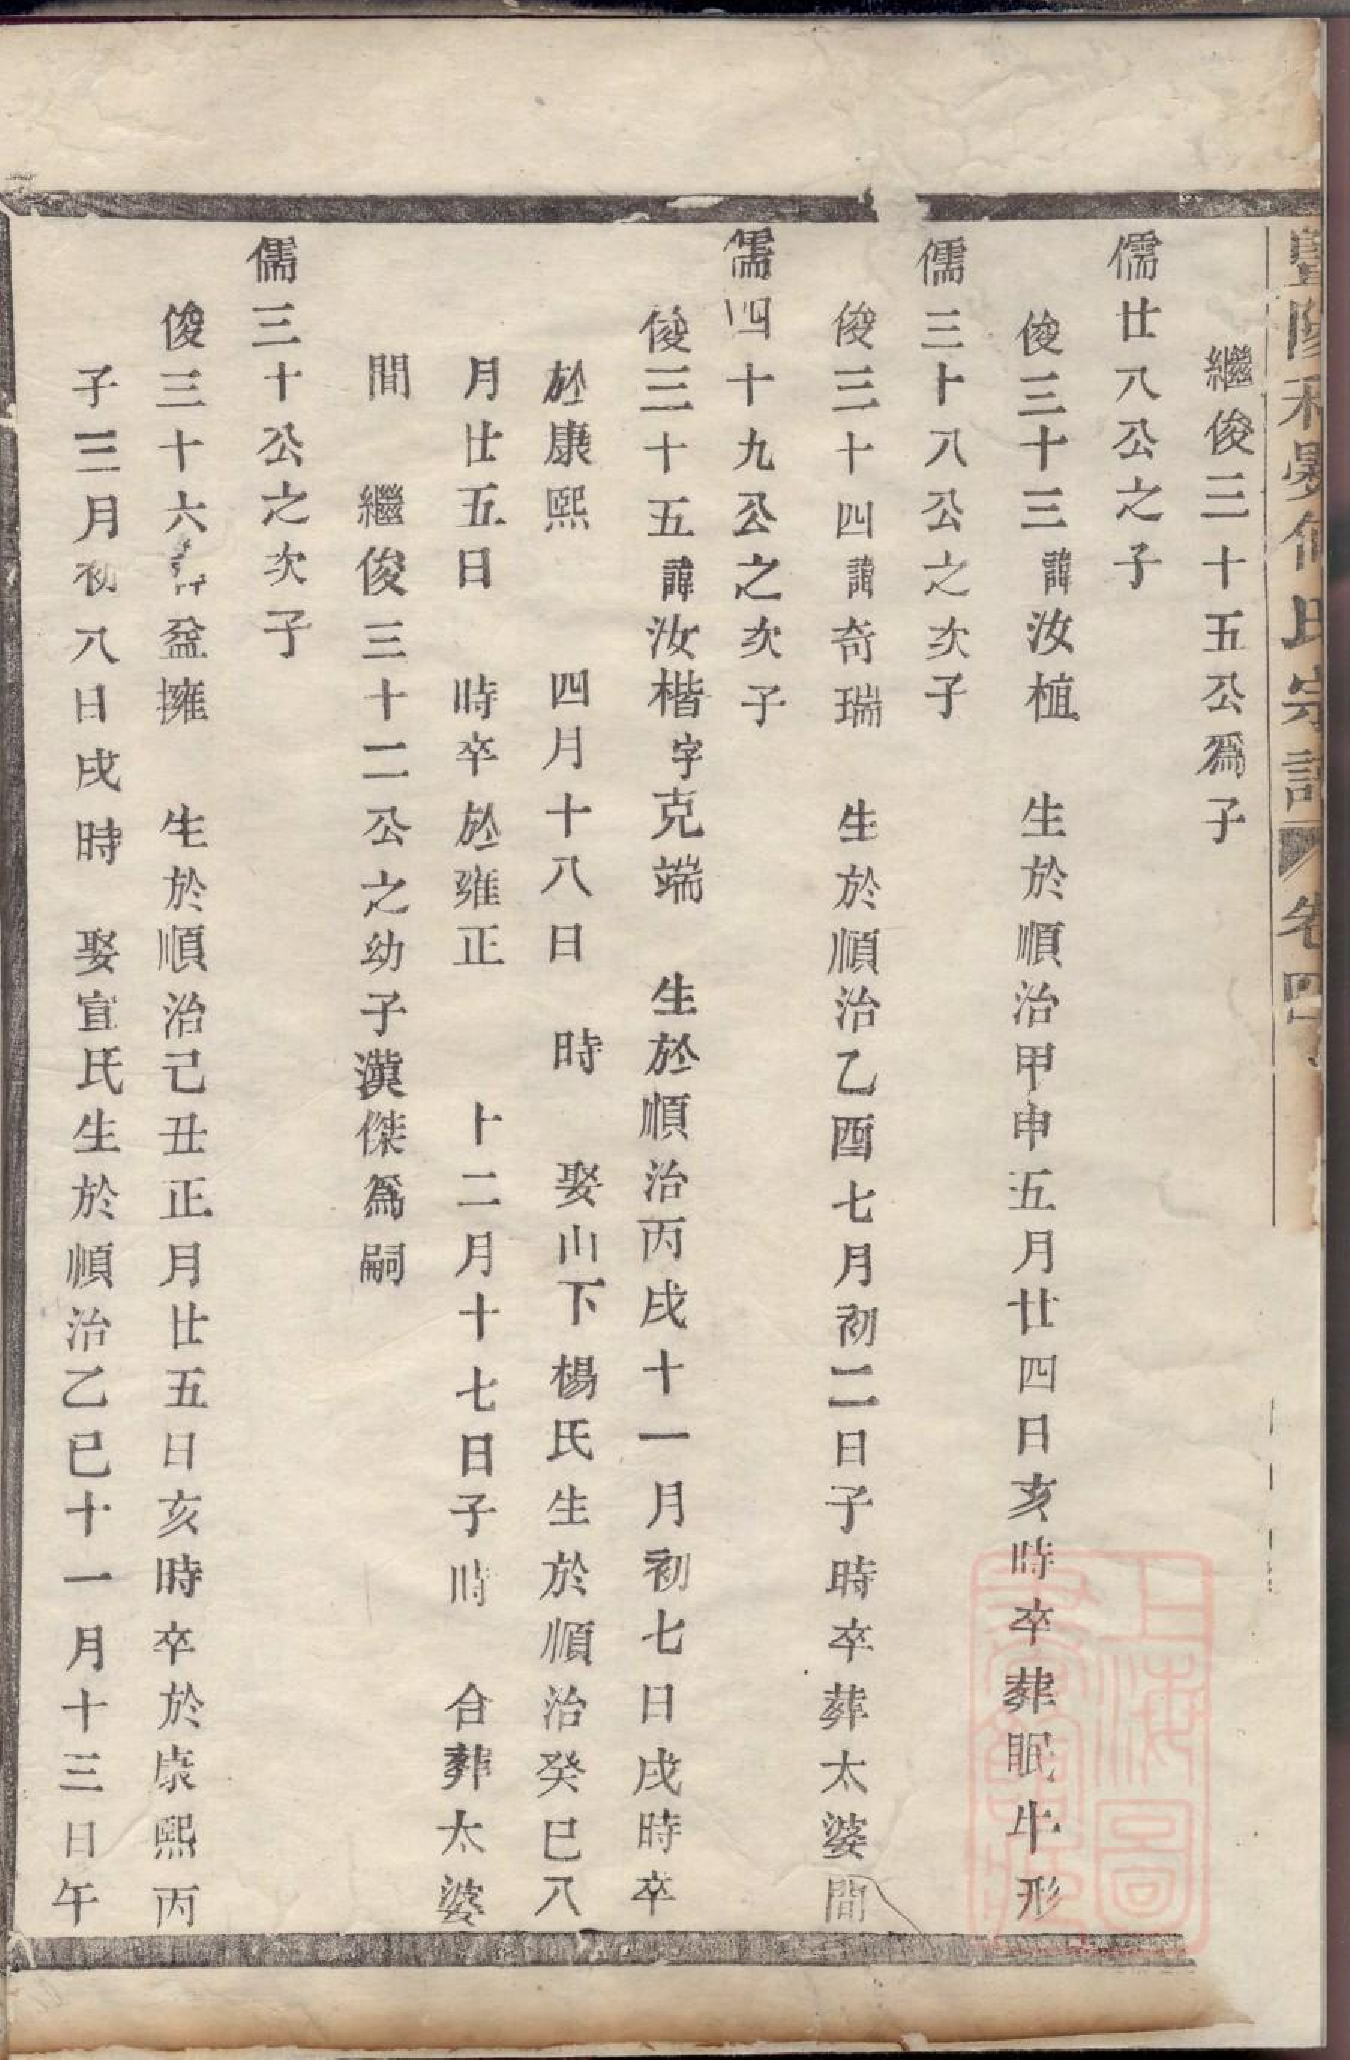 暨陽和晏何氏宗譜 卷四
繼俊三十五公爲子
儒廿八公之子
俊三十三諱汝植 生於順治甲申五月廿四日亥時卒葬眠牛形
儒三十八公之次子
俊三十四諱奇瑞 生於順治乙酉七月初二日子時卒葬太婆間
儒四十九公之次子
俊三十五諱汝楷字克端 生於順治丙戌十一月初七日戌時卒
於康熙 四月十八日 時 娶山下楊氏生於順治癸巳八
月廿五日 時卒於雍正 十二月十七日子時 合葬太婆
間 繼俊三十二公之幼子漢傑爲嗣
儒三十公之次子
俊三十六諱益擁 生於順治己丑正月廿五日亥時卒於康熙丙
子三月初八日戌時 娶宣氏生於順治乙巳十一月十三日午
上海圖書館藏